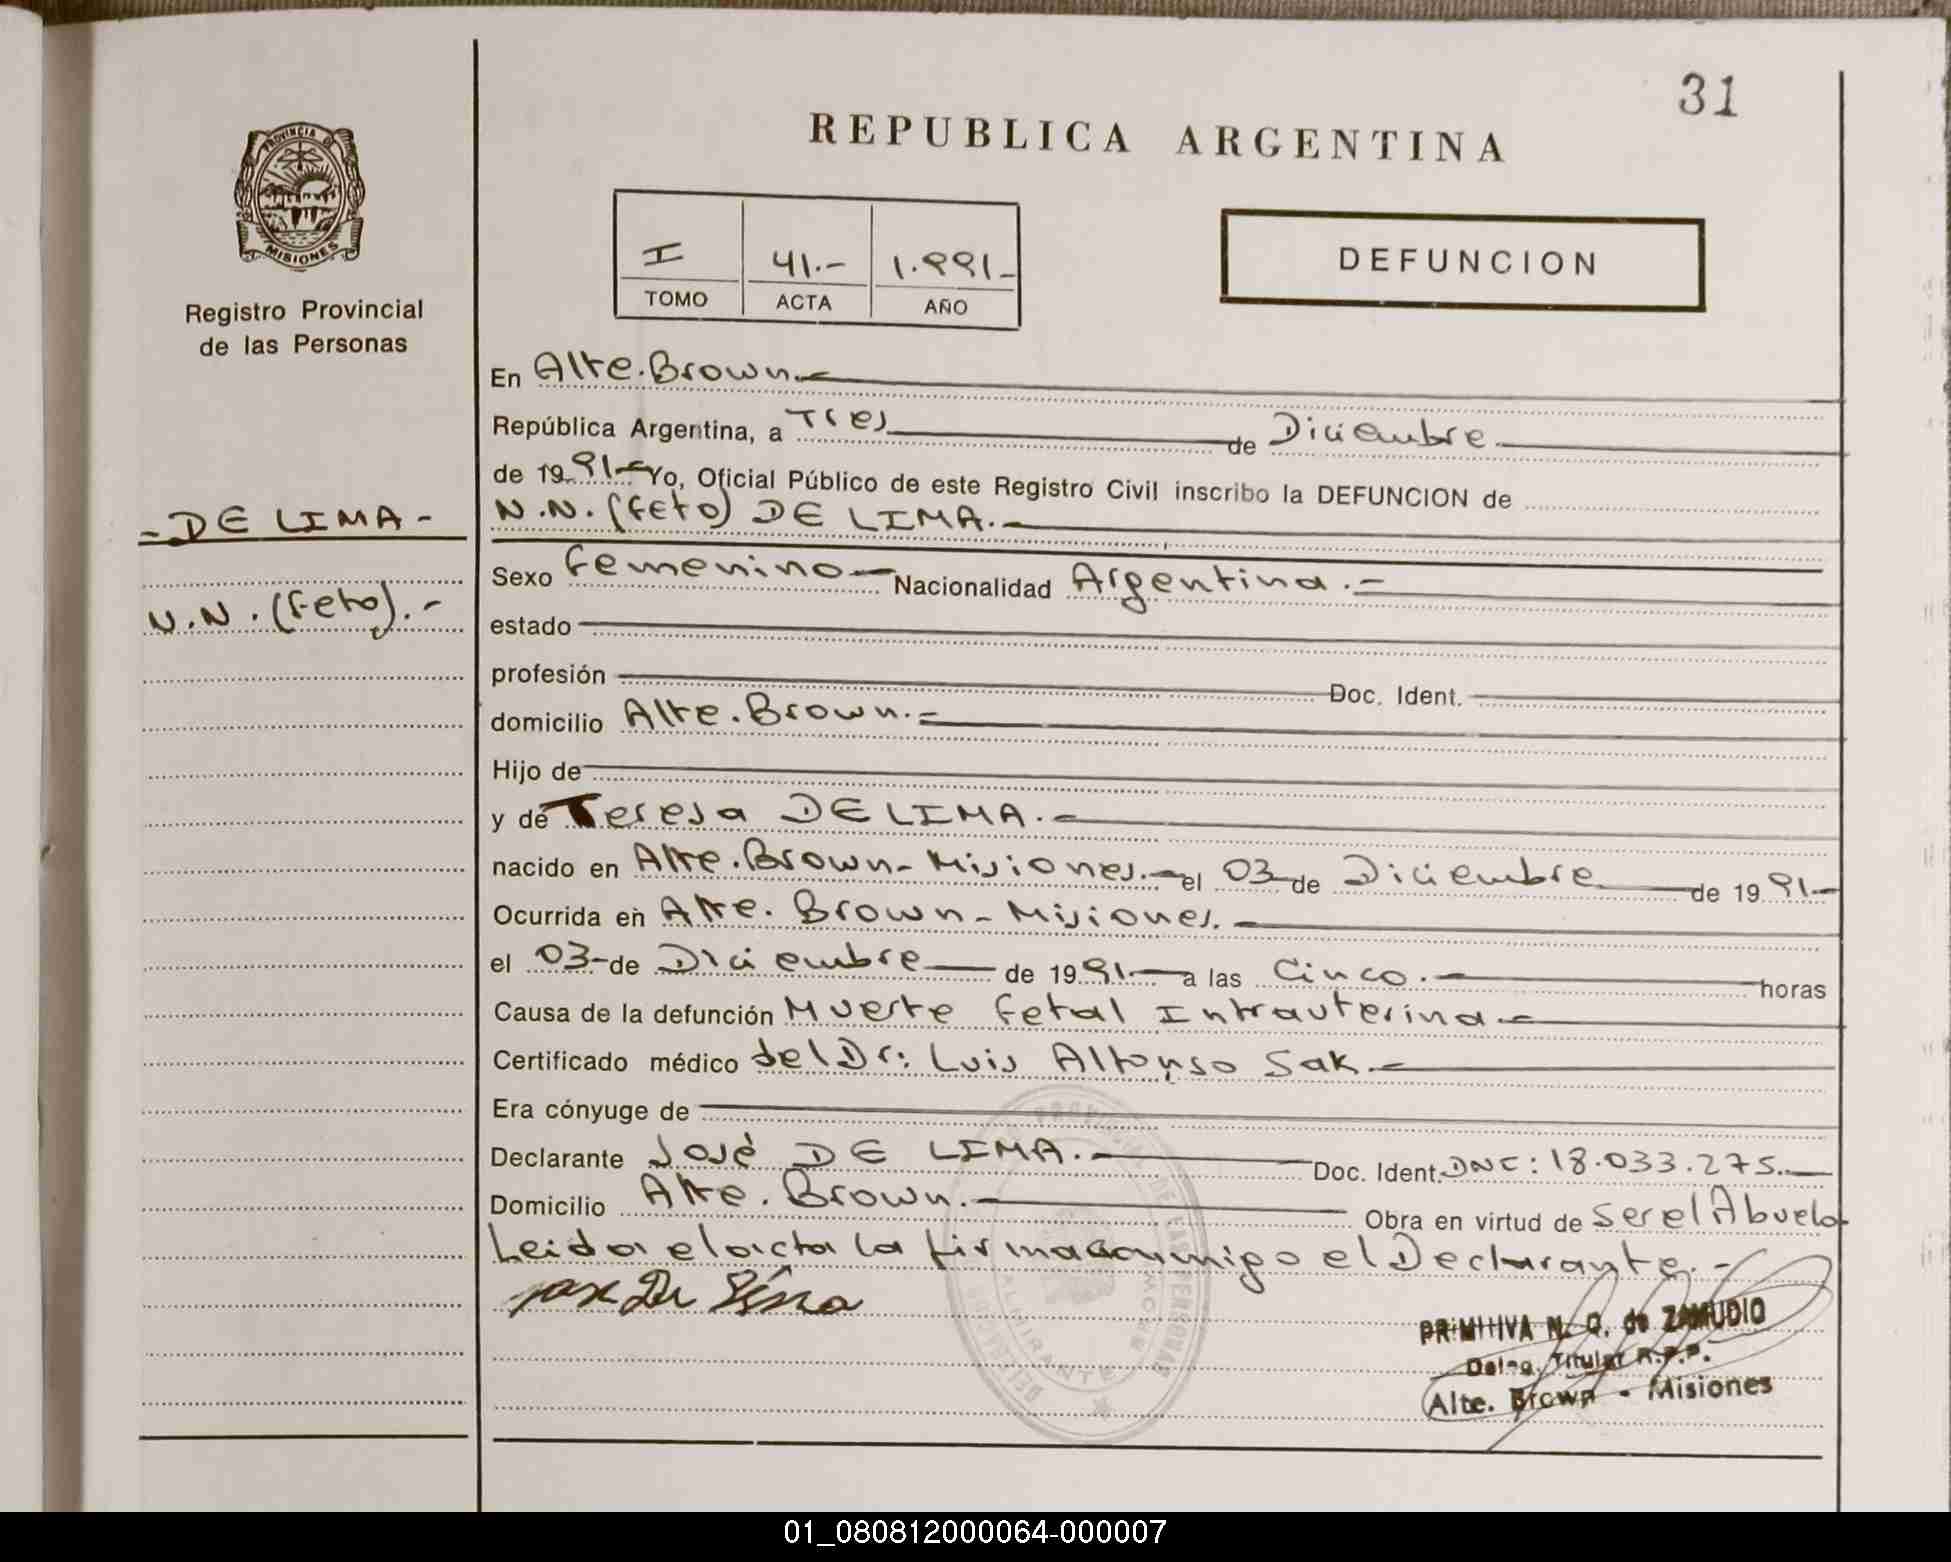 31
REPUBLICA ARGENTINA
PROVINCIA DE
MISIONES
Registro Provincial
de las Personas
I 41.- 1.991-
TOMO ACTA AÑO
DEFUNCION
En Alte. Brown.-
República Argentina, a Tres de Diciembre
de 1991- Yo, Oficial Público de este Registro Civil inscribo la DEFUNCION de
- DE LIMA -
N.N. (Feto) DE LIMA.-
Sexo Femenino- Nacionalidad Argentina.-
N.N. (Feto).-
estado
profesión Doc. Ident.
domicilio Alte. Brown.-
Hijo de
y de Teresa DE LIMA.-
nacido en Alte. Brown- Misiones.- el 03 de Diciembre de 1991-
Ocurrida en Alte. Brown- Misiones.
el 03- de Diciembre de 1991- a las Cinco.- horas
Causa de la defunción Muerte Fetal Intrauterina-
Certificado médico del Dr: Luis Alfonso Sak.-
Era cónyuge de
Declarante José DE LIMA.- Doc. Ident. DNI: 18.033.275.-
Domicilio Alte. Brown.- Obra en virtud de ser el Abuelo
Leida el acta la firma conmigo el Declarante.-
Jose De Lima
PRIMITIVA N. Q. de ZAMUDIO
Deleg. Titular R.P.P.
Alte. Brown - Misiones
01_080812000064-000007